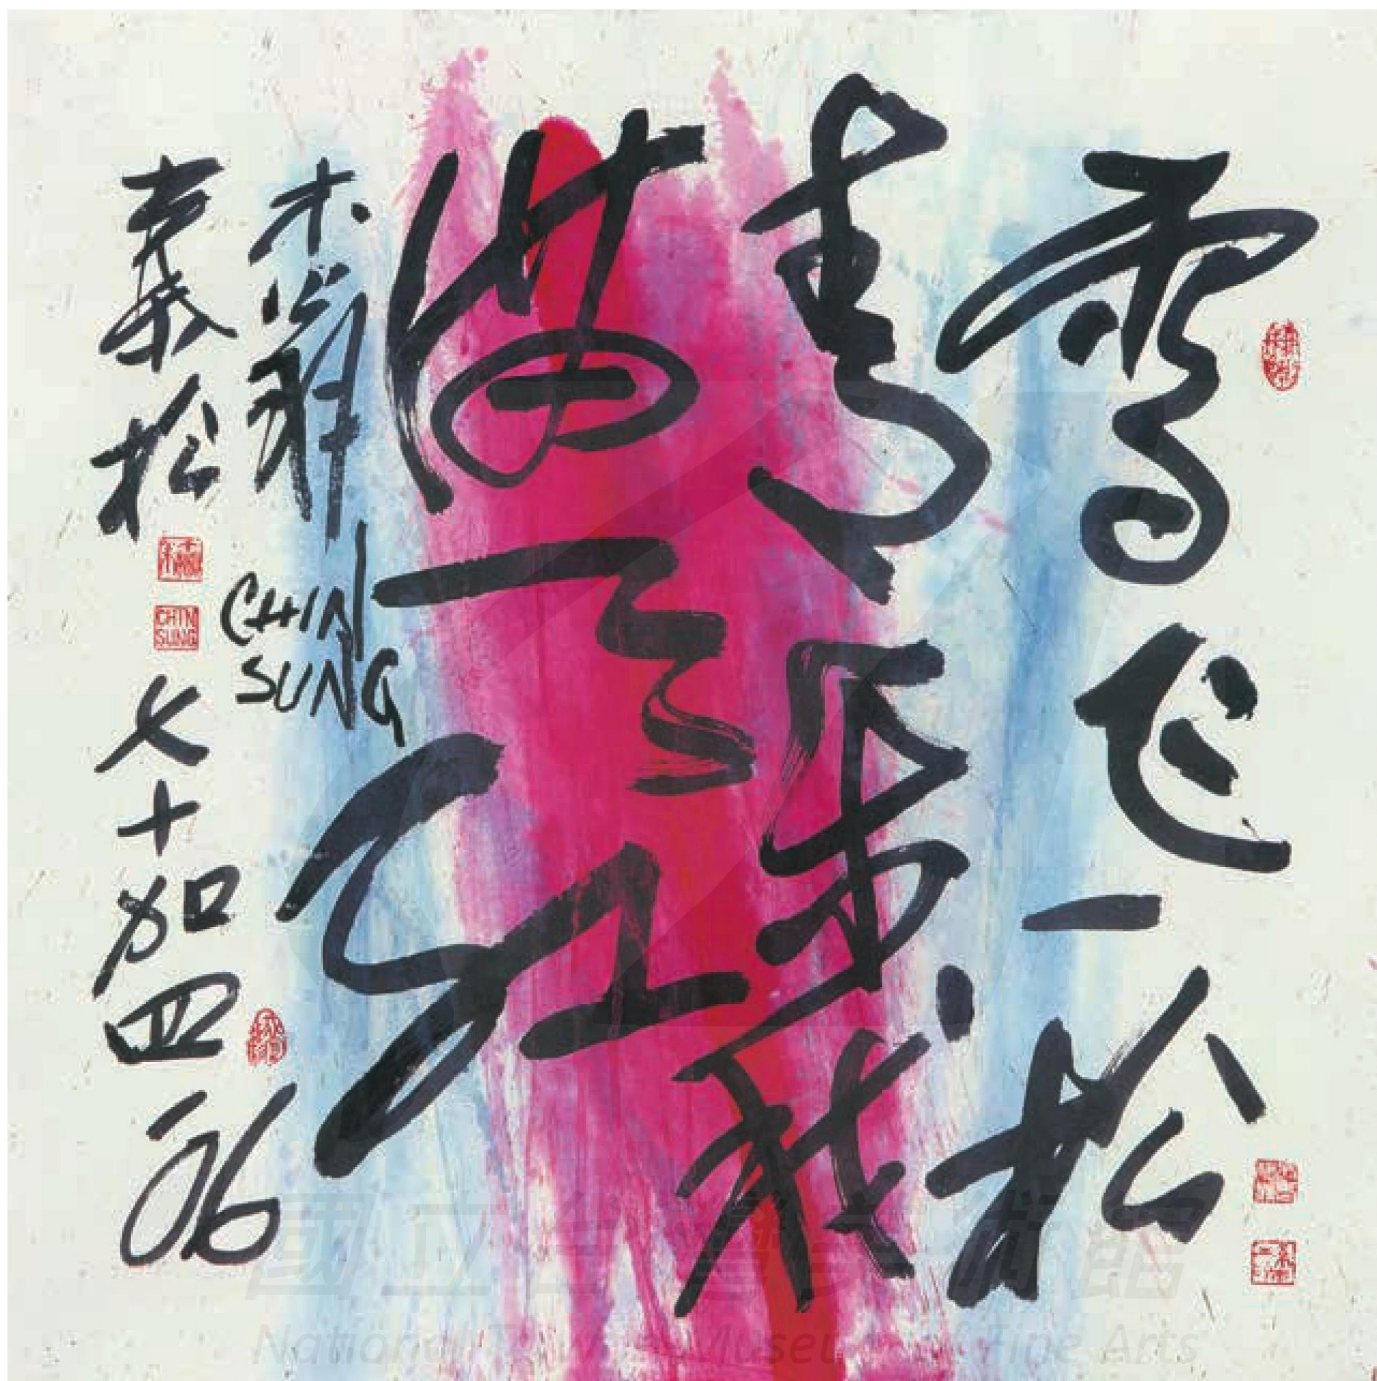 雪飞一松
青我
滿天紅
木翁
CHIN
SUNG
秦松
CHIN
SUNG
七十加四
06
國立台灣美術館
National Taiwan Museum of Fine Arts